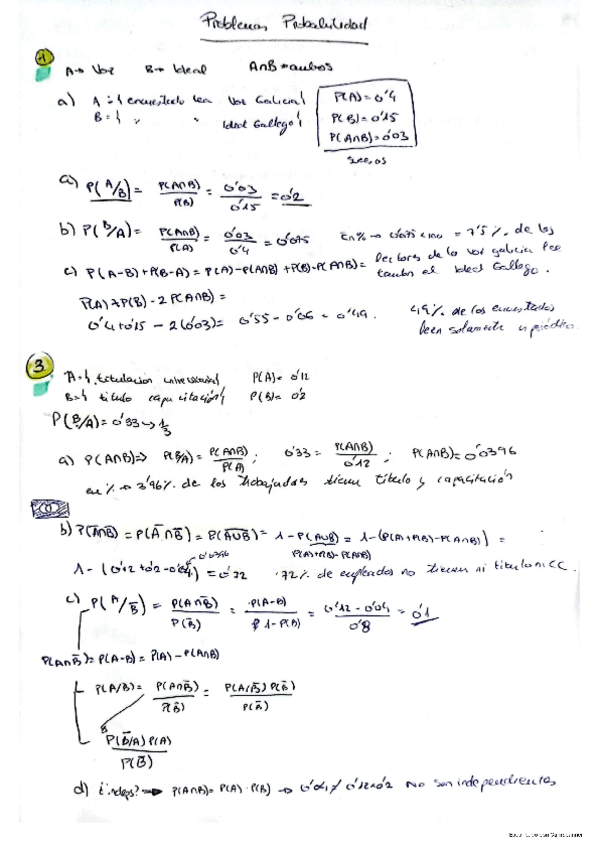 Problemas Probabilidad
1
A → Voz B → Ideal A∩B → ambos
a) A = { encuestado lea Voz Galicia}
B = { " " Ideal Gallego}
P(A) = 0'4
P(B) = 0'15
P(A∩B) = 0'03
a) P(A/B) = P(A∩B)/P(B) = 0'03/0'15 = 0'2
b) P(B/A) = P(A∩B)/P(A) = 0'03/0'4 = 0'075 En % → 0'075 × 100 = 7'5 % de los
lectores de la voz galicia lee
tambn el Ideal Gallego.
c) P(A-B) + P(B-A) = P(A) - P(A∩B) + P(B) - P(A∩B) =
P(A) + P(B) - 2P(A∩B) =
0'4 + 0'15 - 2(0'03) = 0'55 - 0'06 = 0'49. 49% de los encuestados
leen solamente un periódico
3
A = { titulación universitaria} P(A) = 0'12
B = { titulo capacitación} P(B) = 0'2
P(B/A) = 0'33 → 1/3
a) P(A∩B) => P(B/A) = P(A∩B)/P(A) ; 0'33 = P(A∩B)/0'12 ; P(A∩B) = 0'0396
en % → 3'96% de los trabajadores tienen titulo y capacitación
b) P(A̅∩B̅) = P(A̅∩B̅) = P(A̅∪̅B̅) = 1 - P(A∪B) = 1 - (P(A)+P(B)-P(A∩B)) =
P(A)+P(B)-P(A∩B)
0'0396
1 - (0'12 + 0'2 - 0'04) = 0'72 72% de empleados no tienen ni titulo ni CC.
c) P(A/B̅) = P(A∩B̅)/P(B̅) = P(A-B)/1-P(B) = 0'12 - 0'04/0'8 = 0'1
P(A∩B̅) = P(A-B) = P(A) - P(A∩B)
P(A/B) = P(A∩B̅)/P(B̅) = P(A/B̅) P(B̅)/P(B̅)
P(B̅/A) P(A)/P(B̅)
d) ¿indeps? → P(A∩B) = P(A) · P(B) → 0'04 ≠ 0'12×0'2 No son independientes